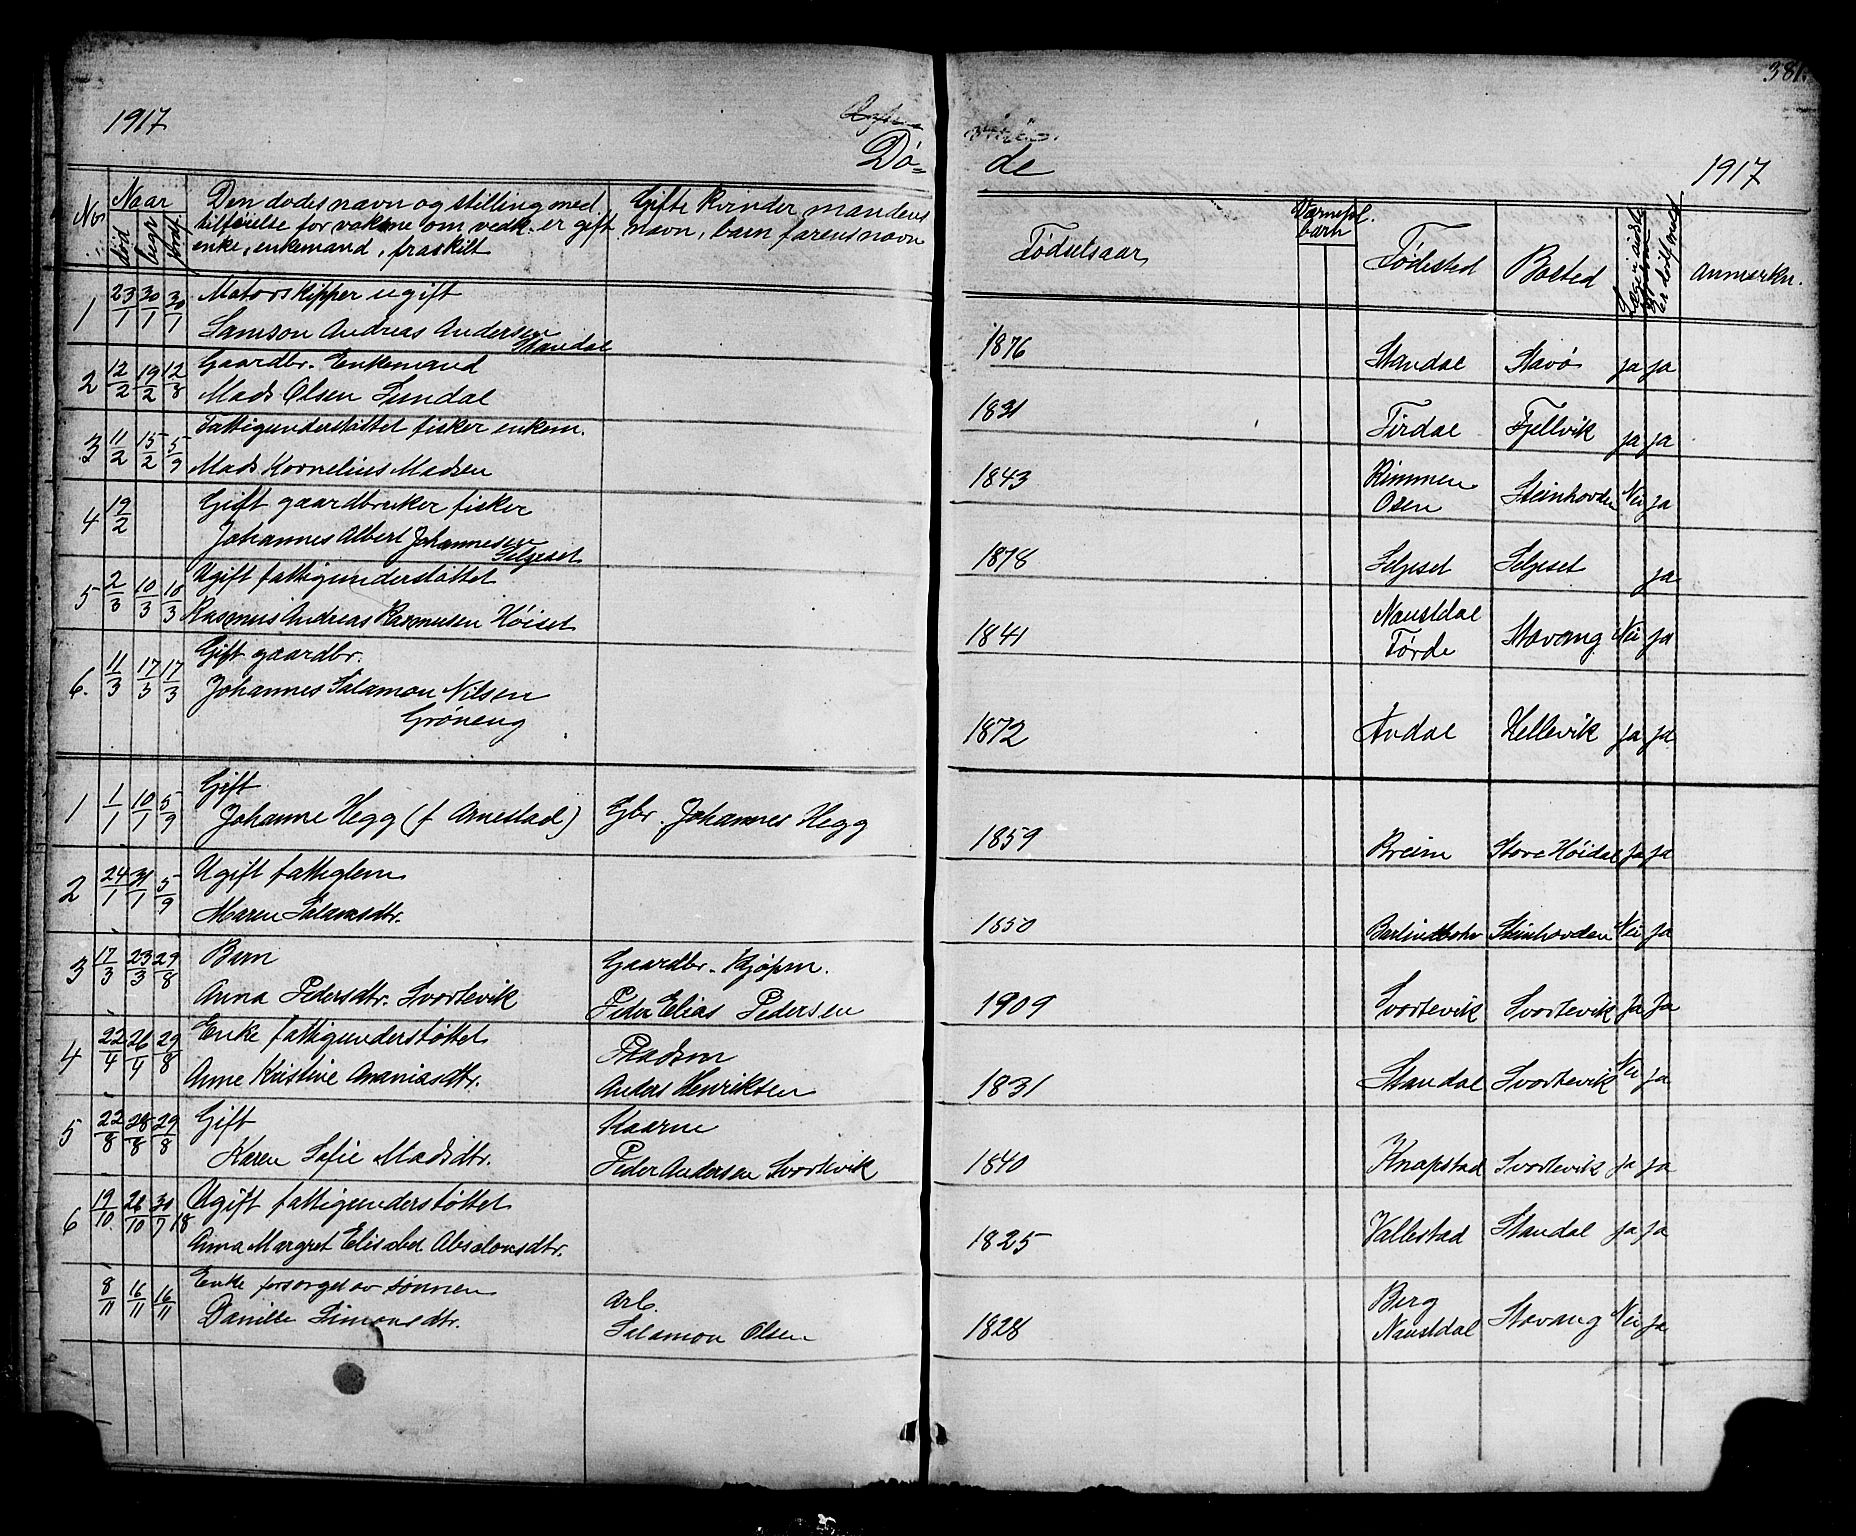 381.
1917
Dø- de
1917
No.
Naar
død
begr.
Den dødes navn og stilling med
tilføielse for voksne om vedk. er gift,
enke, enkemand, fraskilt
Gifte kvinder mandens
navn, barn farens navn
Fødselsaar
barn
Fødested
Bosted
Anmerkn.
1 23/1 30/1 30/1 Motorskipper ugift
Samson Andreas Andersen
Standal 1876 Standal Stavø ja ja
2 12/2 19/2 12/8 Gaardbr. Enkemand
Mads Olsen Sundal 1831 Tirdal Fjellvik ja ja
3 11/2 15/2 5/9 Fattigunderstøttet fisker enkem.
Mads Kornelius Madsen 1843 Rimmen
Osen Steinhovden Nei ja
4 19/2 Gift gaardbruker fisker
Johannes Albert Johannesen
Selgeset 1878 Selgeset Selgeset ja
5 2/3 10/3 10/3 Ugift fattigunderstøttet
Rasmus Andreas Rasmusen Høiset 1841 Naustdal
Førde Stavang Nei ja
6. 11/3 17/3 17/3 Gift gaardbr.
Johannes Salamon Nilsen
Grøneng 1872 Andal Hellevik ja ja
1 1/1 10/1 5/9 Gift
Johanne Hegg (f Arnestad) Gbr. Johannes Hegg 1859 Breim Store Høidal Ja ja
2 24/1 31/1 5/9 Ugift fattiglem
Maren Salamsdtr. 1850 Steinhovden Nei ja
3 17/3 23/3 29/8 Barn
Anna Pedersdtr. Svortevik Gaardbr. Kjøpm.
Peder Elias Pedersen 1909 Svortevik Svortevik Ja Ja
4 22/4 26/4 29/8 Enke fattigunderstøttet
Anne Kristine Ananiasdtr. Pladsm
Anders Henriksen 1831 Standal Svortevik Nei ja
5 22/8 28/8 29/8 Gift
Karen Sofie Madsdtr. Kaarm
Peder Andersen Svortevik 1840 Knapstad Svortevik ja ja
6 19/10 26/10 30/7 18 Ugift fattigunderstøttet
Anna Margret Elisabet Absalonsdtr. 1825 Vallestad Standal ja ja
8/11 16/11 16/11 Enke forsørget av sønnen
Danille Simonsdtr. Arb.
Salamon Olsen 1828 Berg
Naustdal Stavang Nei ja